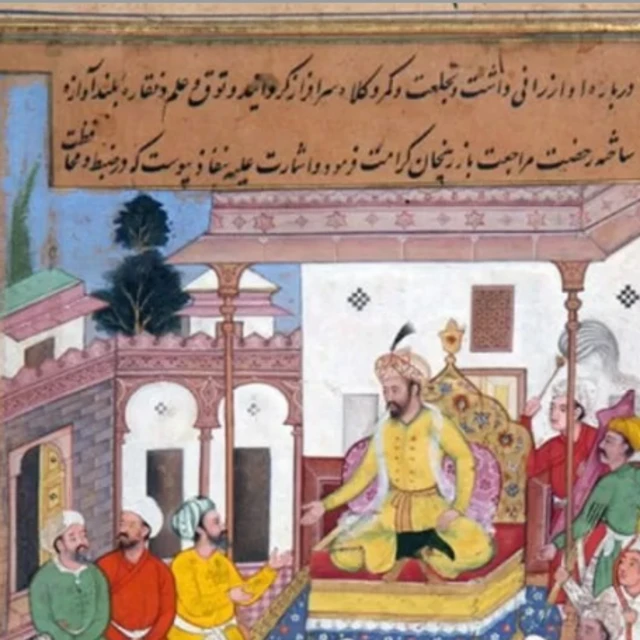 درباره او ارزانی داشت و بخلعت و کمر و کلاه سرافراز کردانید و توق و علم و نقاره بلند آوازه
ساخته رخصت مراجعت بازرنجان کرامت فرمود و اشارت علیه بنفاذ پیوست که در ضبط و محافظت